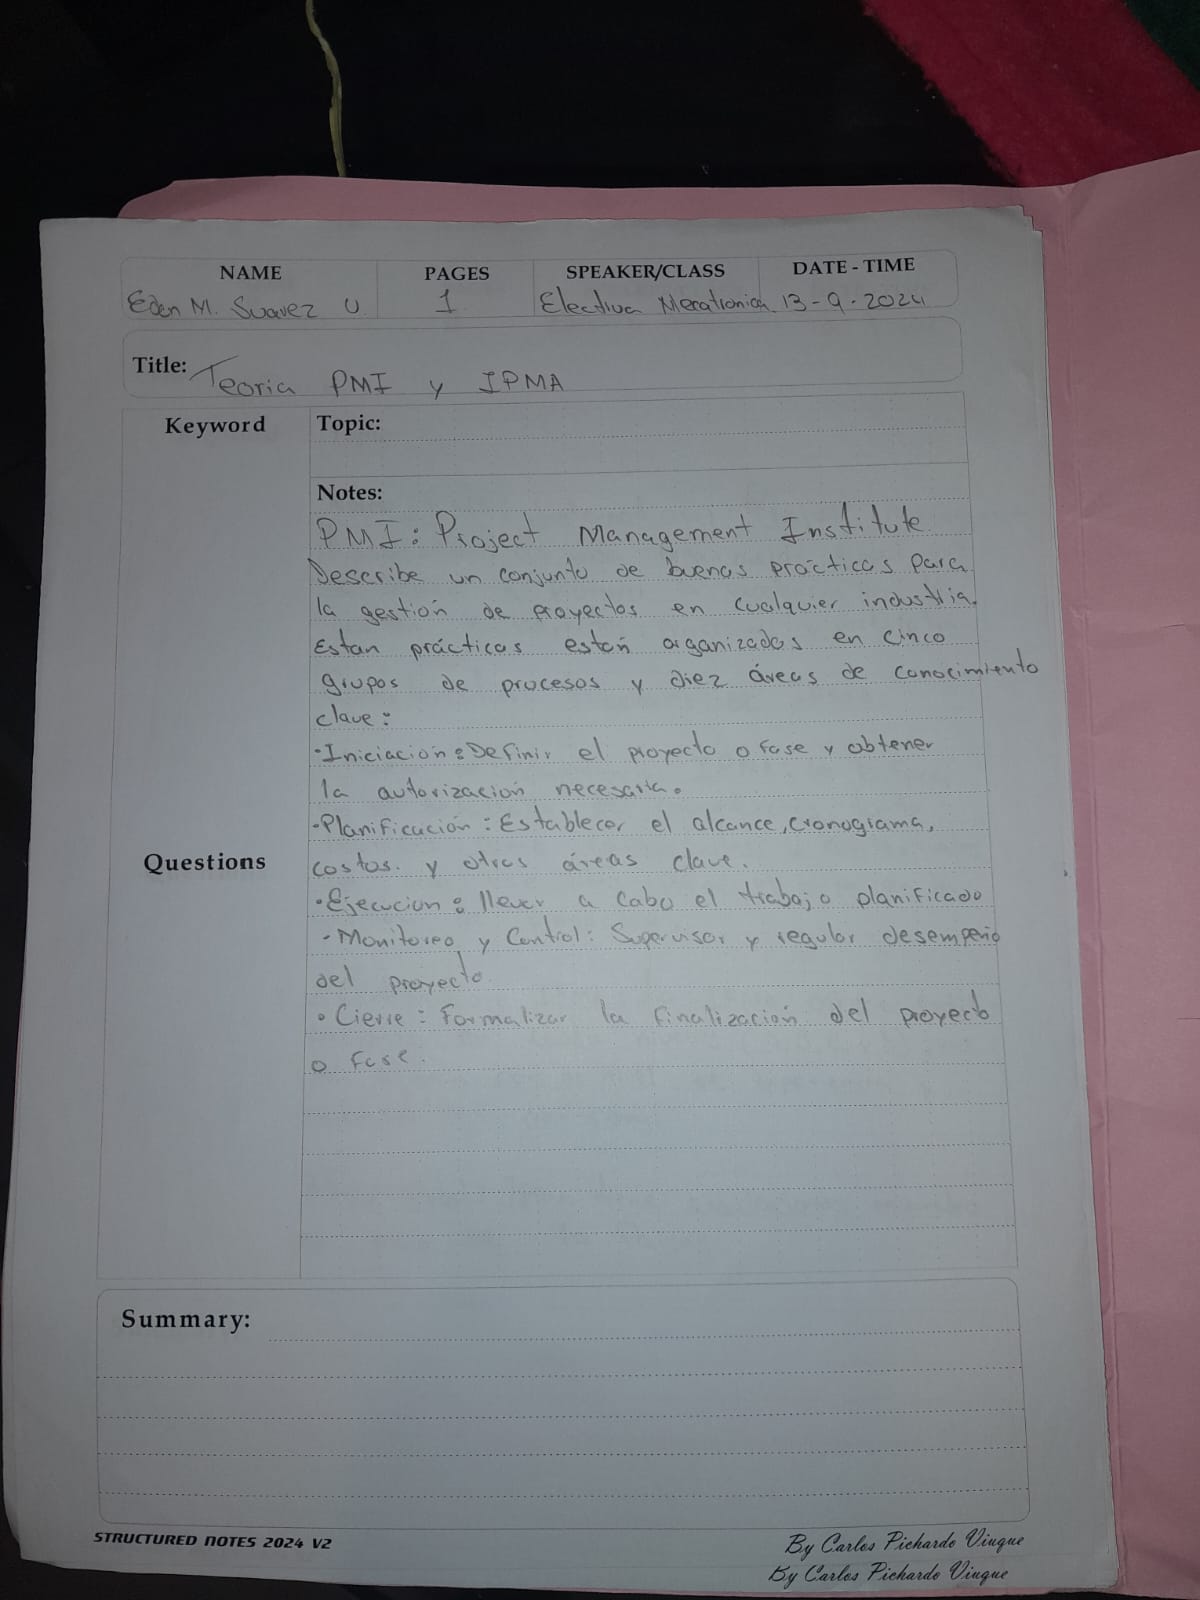 NAME PAGES SPEAKER/CLASS DATE - TIME
Eden M. Suarez U. 1 Electiva Mecatronica 13-9-2024
Title: Teoria PMI y IPMA
Keyword Topic:
Notes:
PMI: Project Management Institute
Describe un conjunto de buenas prácticas para
la gestión de proyectos en cualquier industria.
Estan prácticas están organizados en cinco
grupos de procesos y diez áreas de conocimiento
clave:
·Iniciación: Definir el proyecto o fase y obtener
la autorización necesaria.
·Planificación: Establecer el alcance, cronograma,
Questions costos. y otras áreas clave.
·Ejecucion: llevar a cabo el trabajo planificado
·Monitoreo y Control: Supervisar y regular desempeño
del proyecto.
·Cierre: Formalizar la finalización del proyecto
o fase.
Summary:
STRUCTURED NOTES 2024 V2 By Carlos Pichardo Viuque
By Carlos Pichardo Viuque